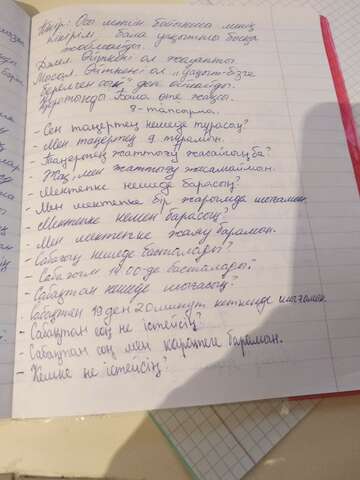 Пікір: Осы мәтін бойынша менің
пікірім бала уақытты босқа
жоғалтады.
Дәлел: Өйткені ол жалқау
Мысал: Өйткені ол „уақыт-бізге
берілген сый" деп ойлайды.
Қорытынды: Бала өте жақсы.
8-тапсырма.
- Сен таңертең нешеде тұрасың?
- Мен таңертең 9 тұрамын.
- Таңертең жаттығу жасайсың ба?
- Жоқ, мен жаттығу жасамаймын.
- Мектепке нешеде барасың?
- Мен мектепке бір жарымда шығамын.
- Мектепке немен барасың?
- Мен мектепке жаяу барамын.
- Сабағың нешеде басталады?
- Сабағым 14:00-де басталады.
- Сабақтан нешеде шығасың?
- Сабақтан 19 ден 20 минут кеткенде шығамын.
- Сабақтан соң не істейсің?
- Сабақтан соң мен барамын.
- Кешке не істейсің?